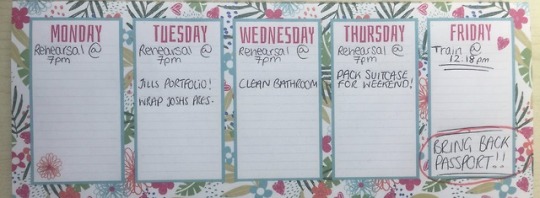 MONDAY
Rehearsal @
7pm
TUESDAY
Rehearsal @
7pm
JILLS PORTFOLIO!
WRAP JOSHS PRES-
WEDNESDAY
Rehearsal @
7pm
CLEAN BATHROOM
THURSDAY
Rehearsal @
7pm
PACK SUITCASE
FOR WEEKEND!
FRIDAY
Train @
12.18pm
BRING BACK
PASSPORT!!